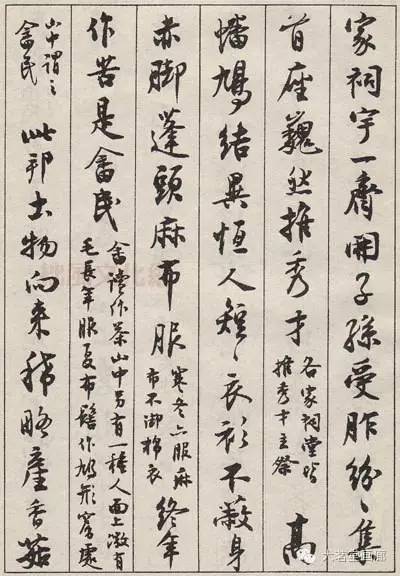 家祠宇一齊開子孫受胙紛々集
首座巍然推秀才
各家祠堂皆
推秀才主祭
高
蟠鳩結異恒人短々衣衫不蔽身
赤脚蓬頭麻布服
寒冬亦服麻
布不御棉衣
終年
作苦是畬民
畬讀作茶山中另有一種人面上微有
毛長年服夏布髻作鳩形窩處
山中謂之
畬民
此邦土物向来稀略產香菇